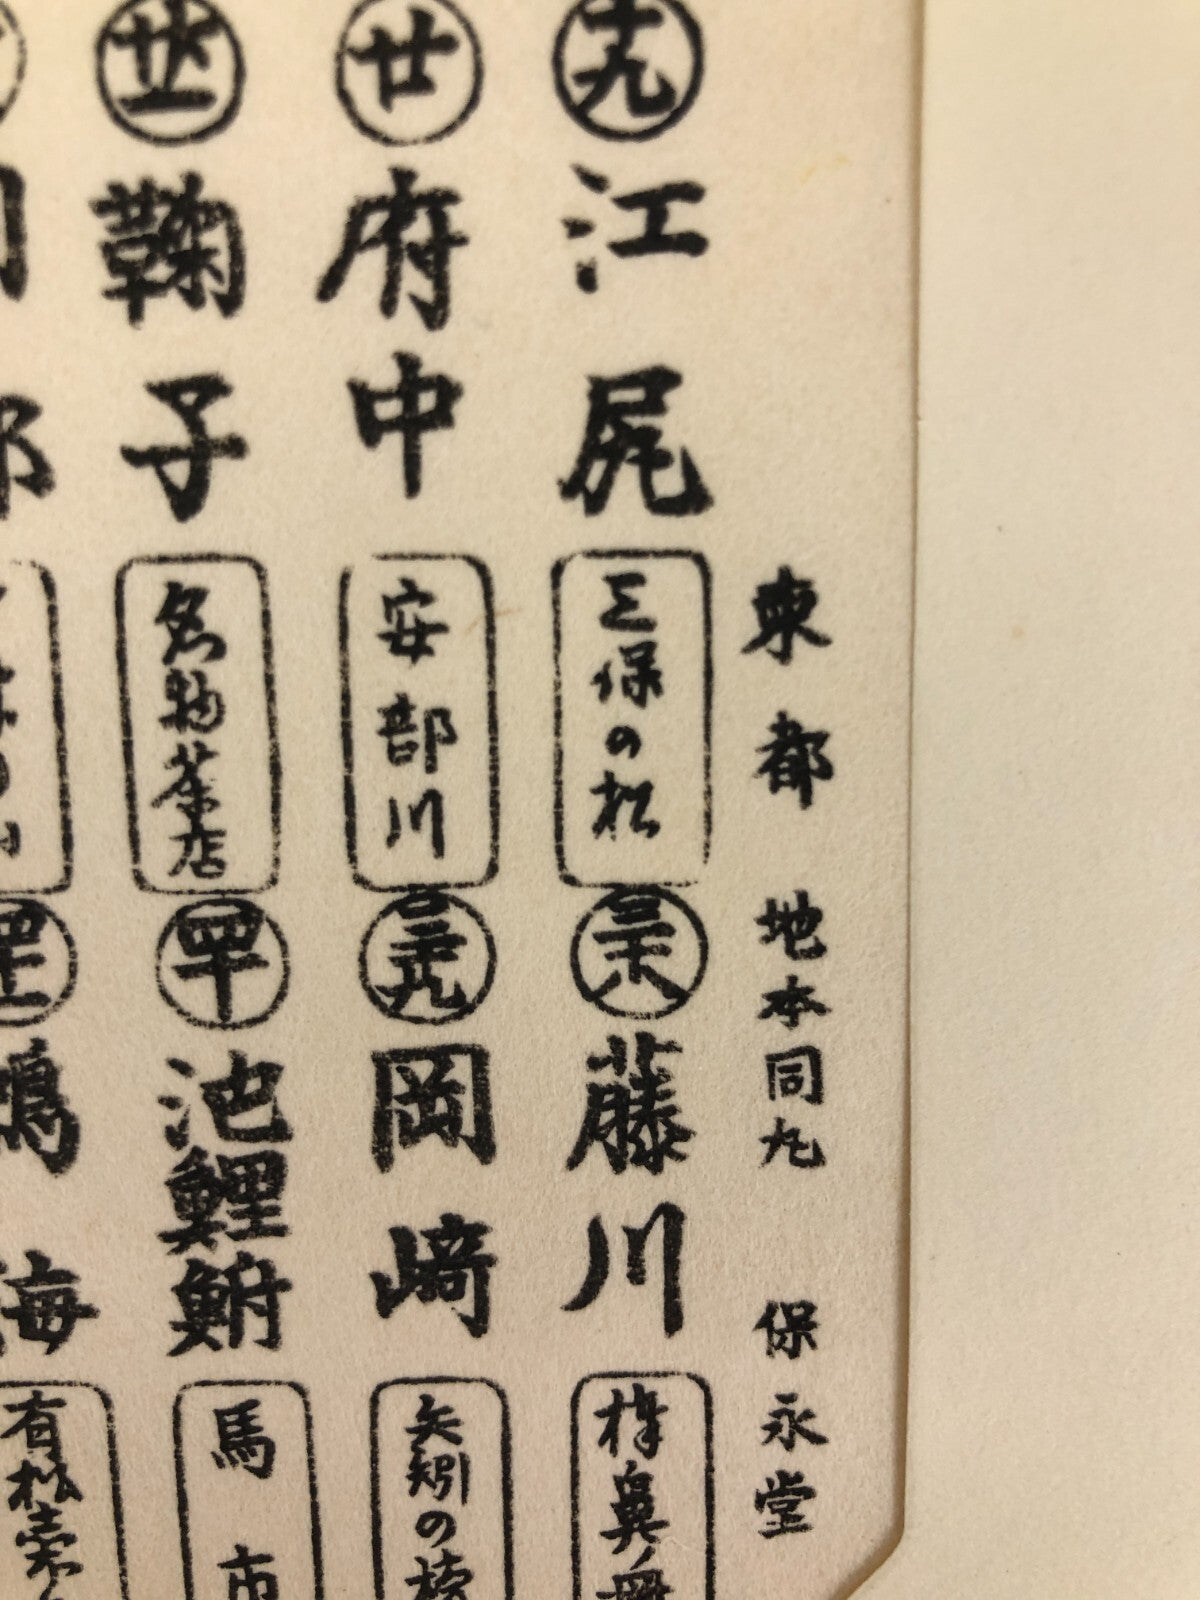 東都 地本同丸 保永堂
十九
江尻
三保の松
廿
府中
安部川
廿一
鞠子
名物茶店
三十八
藤川
棒鼻ノ
三十九
岡崎
矢矧の
四十
池鯉鮒
馬市
海
有松